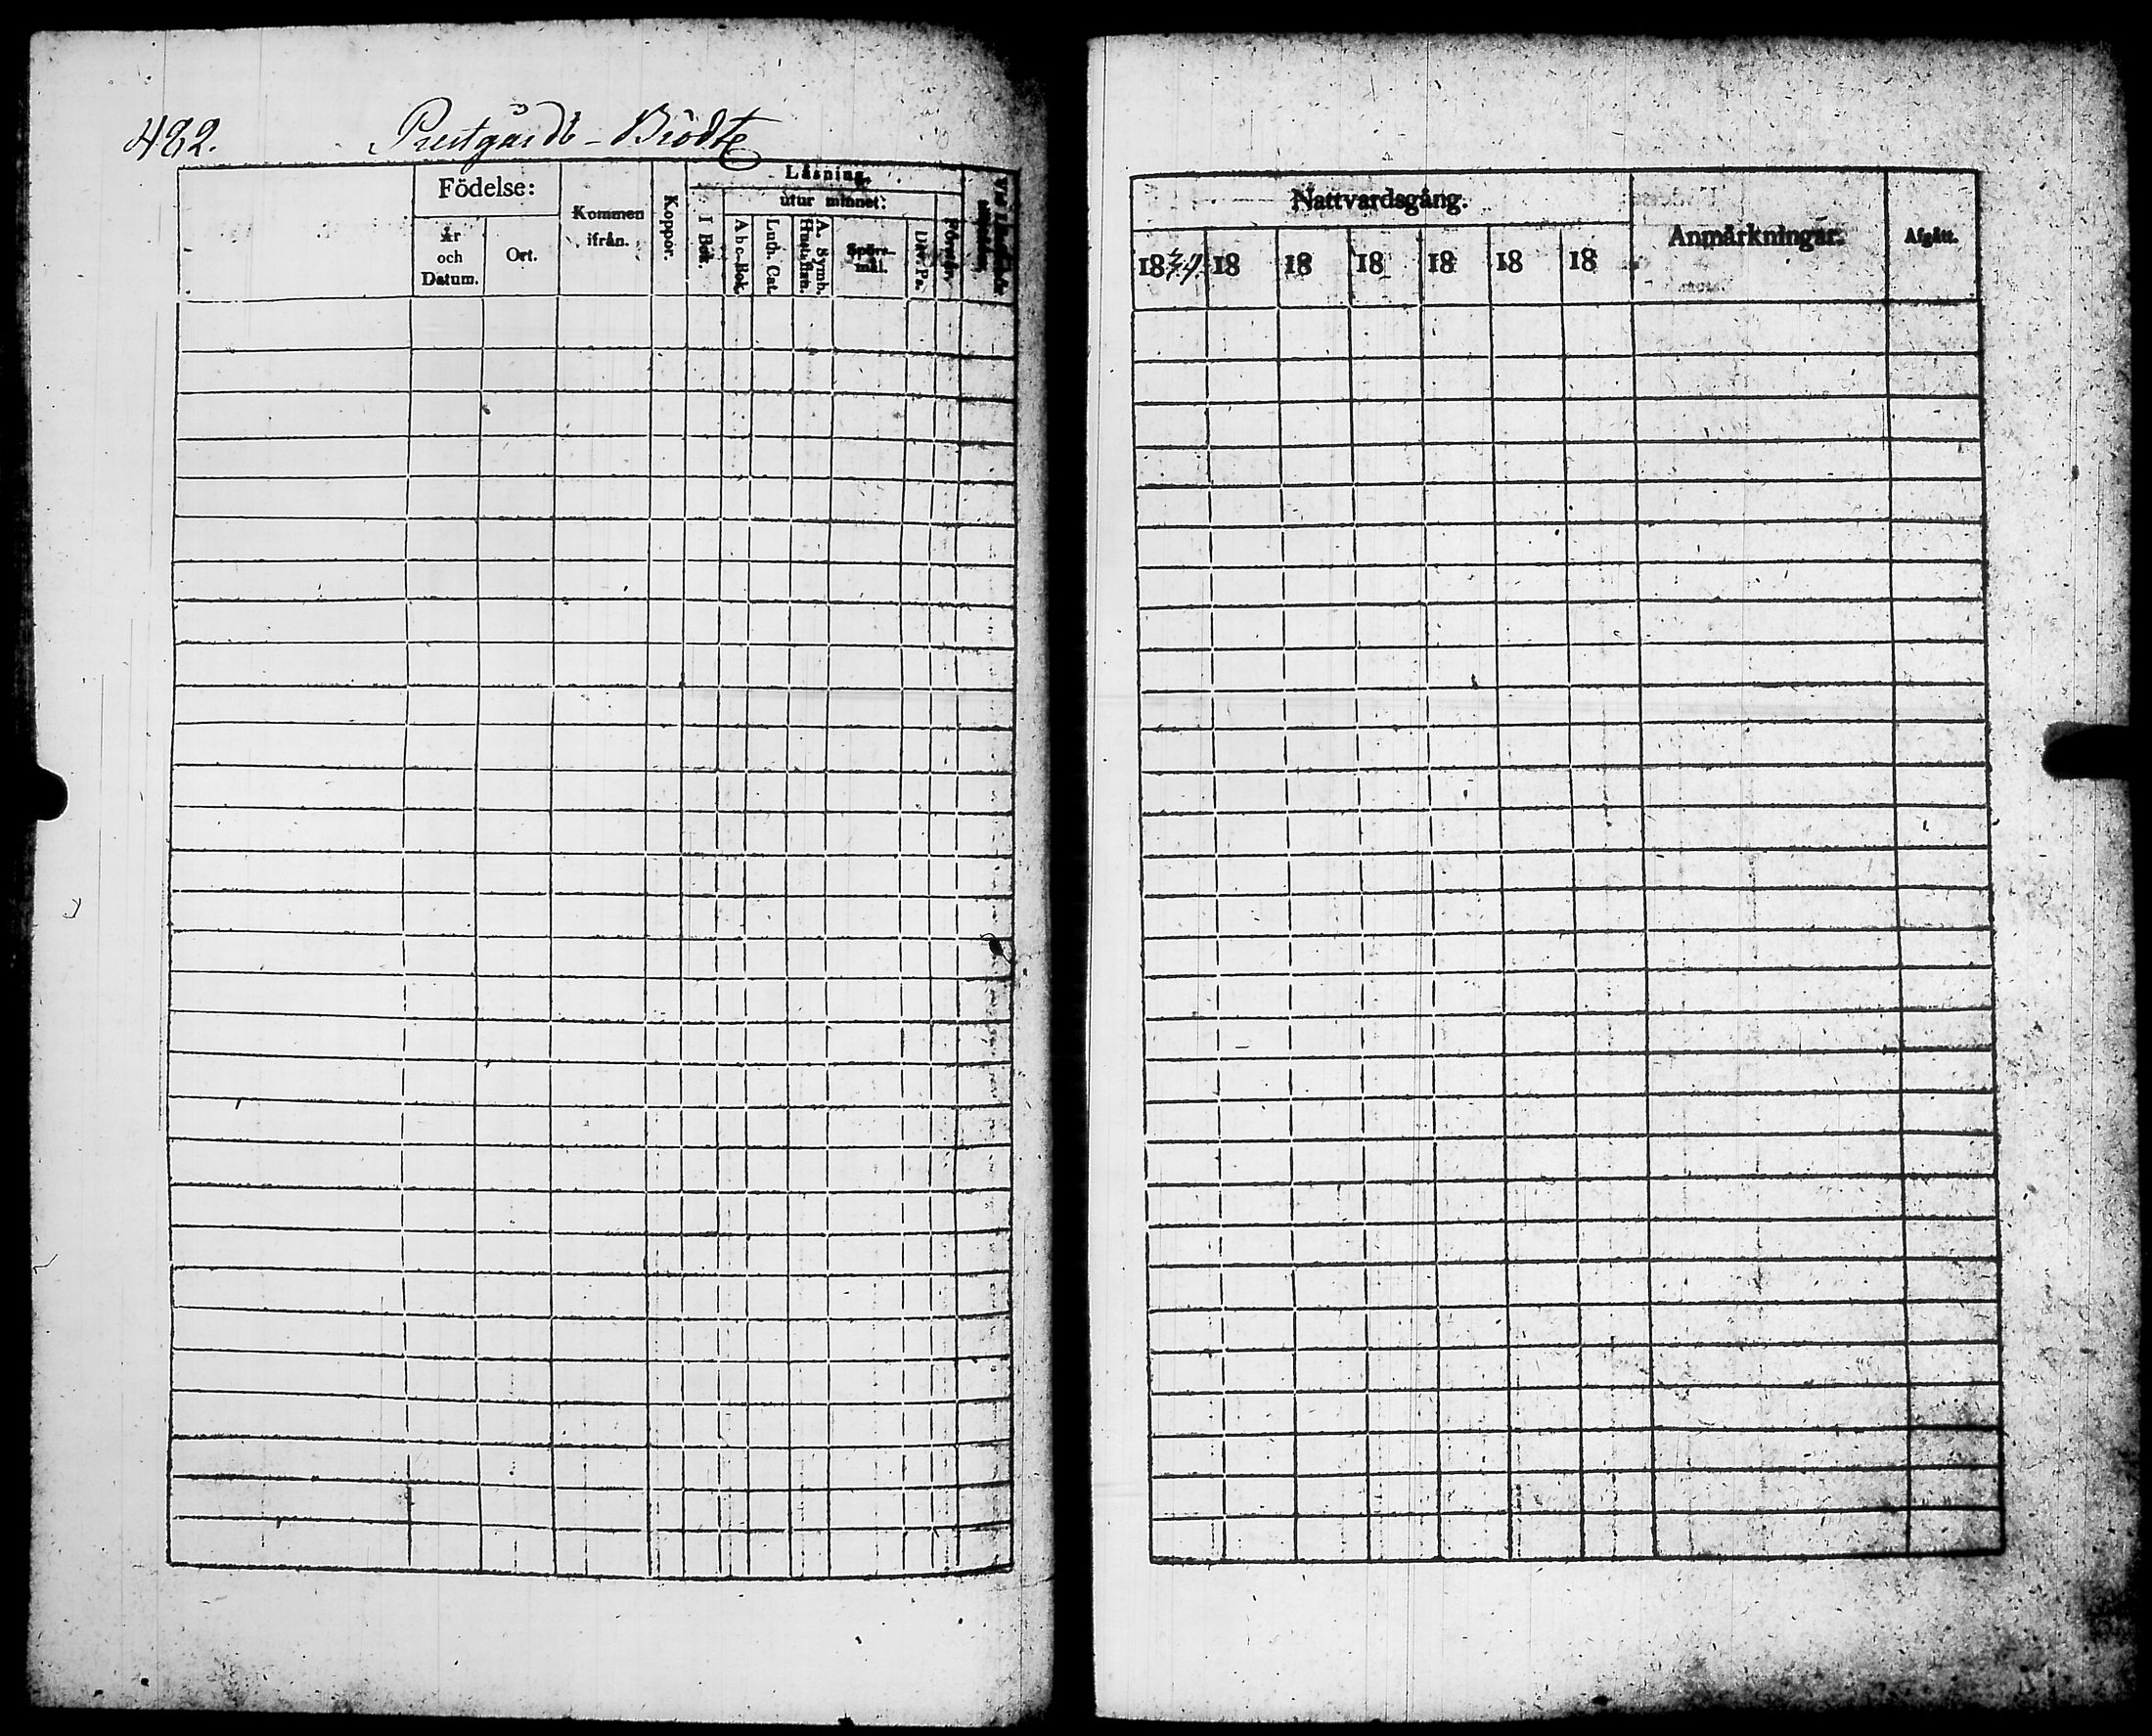 482.
Födelse:
År
och
Datum.
Ort.
Kommen
ifrån.
Koppor.
Läsning.
I Bok.
utur minnet:
Abc-Bok.
Luth. Cat.
A. Symb.
Hust.
Spörs-
mål.
Dav. Ps.
Nattvardsgång.
18
18
18
18
18
18
18
Anmärkningar.
Afgått.